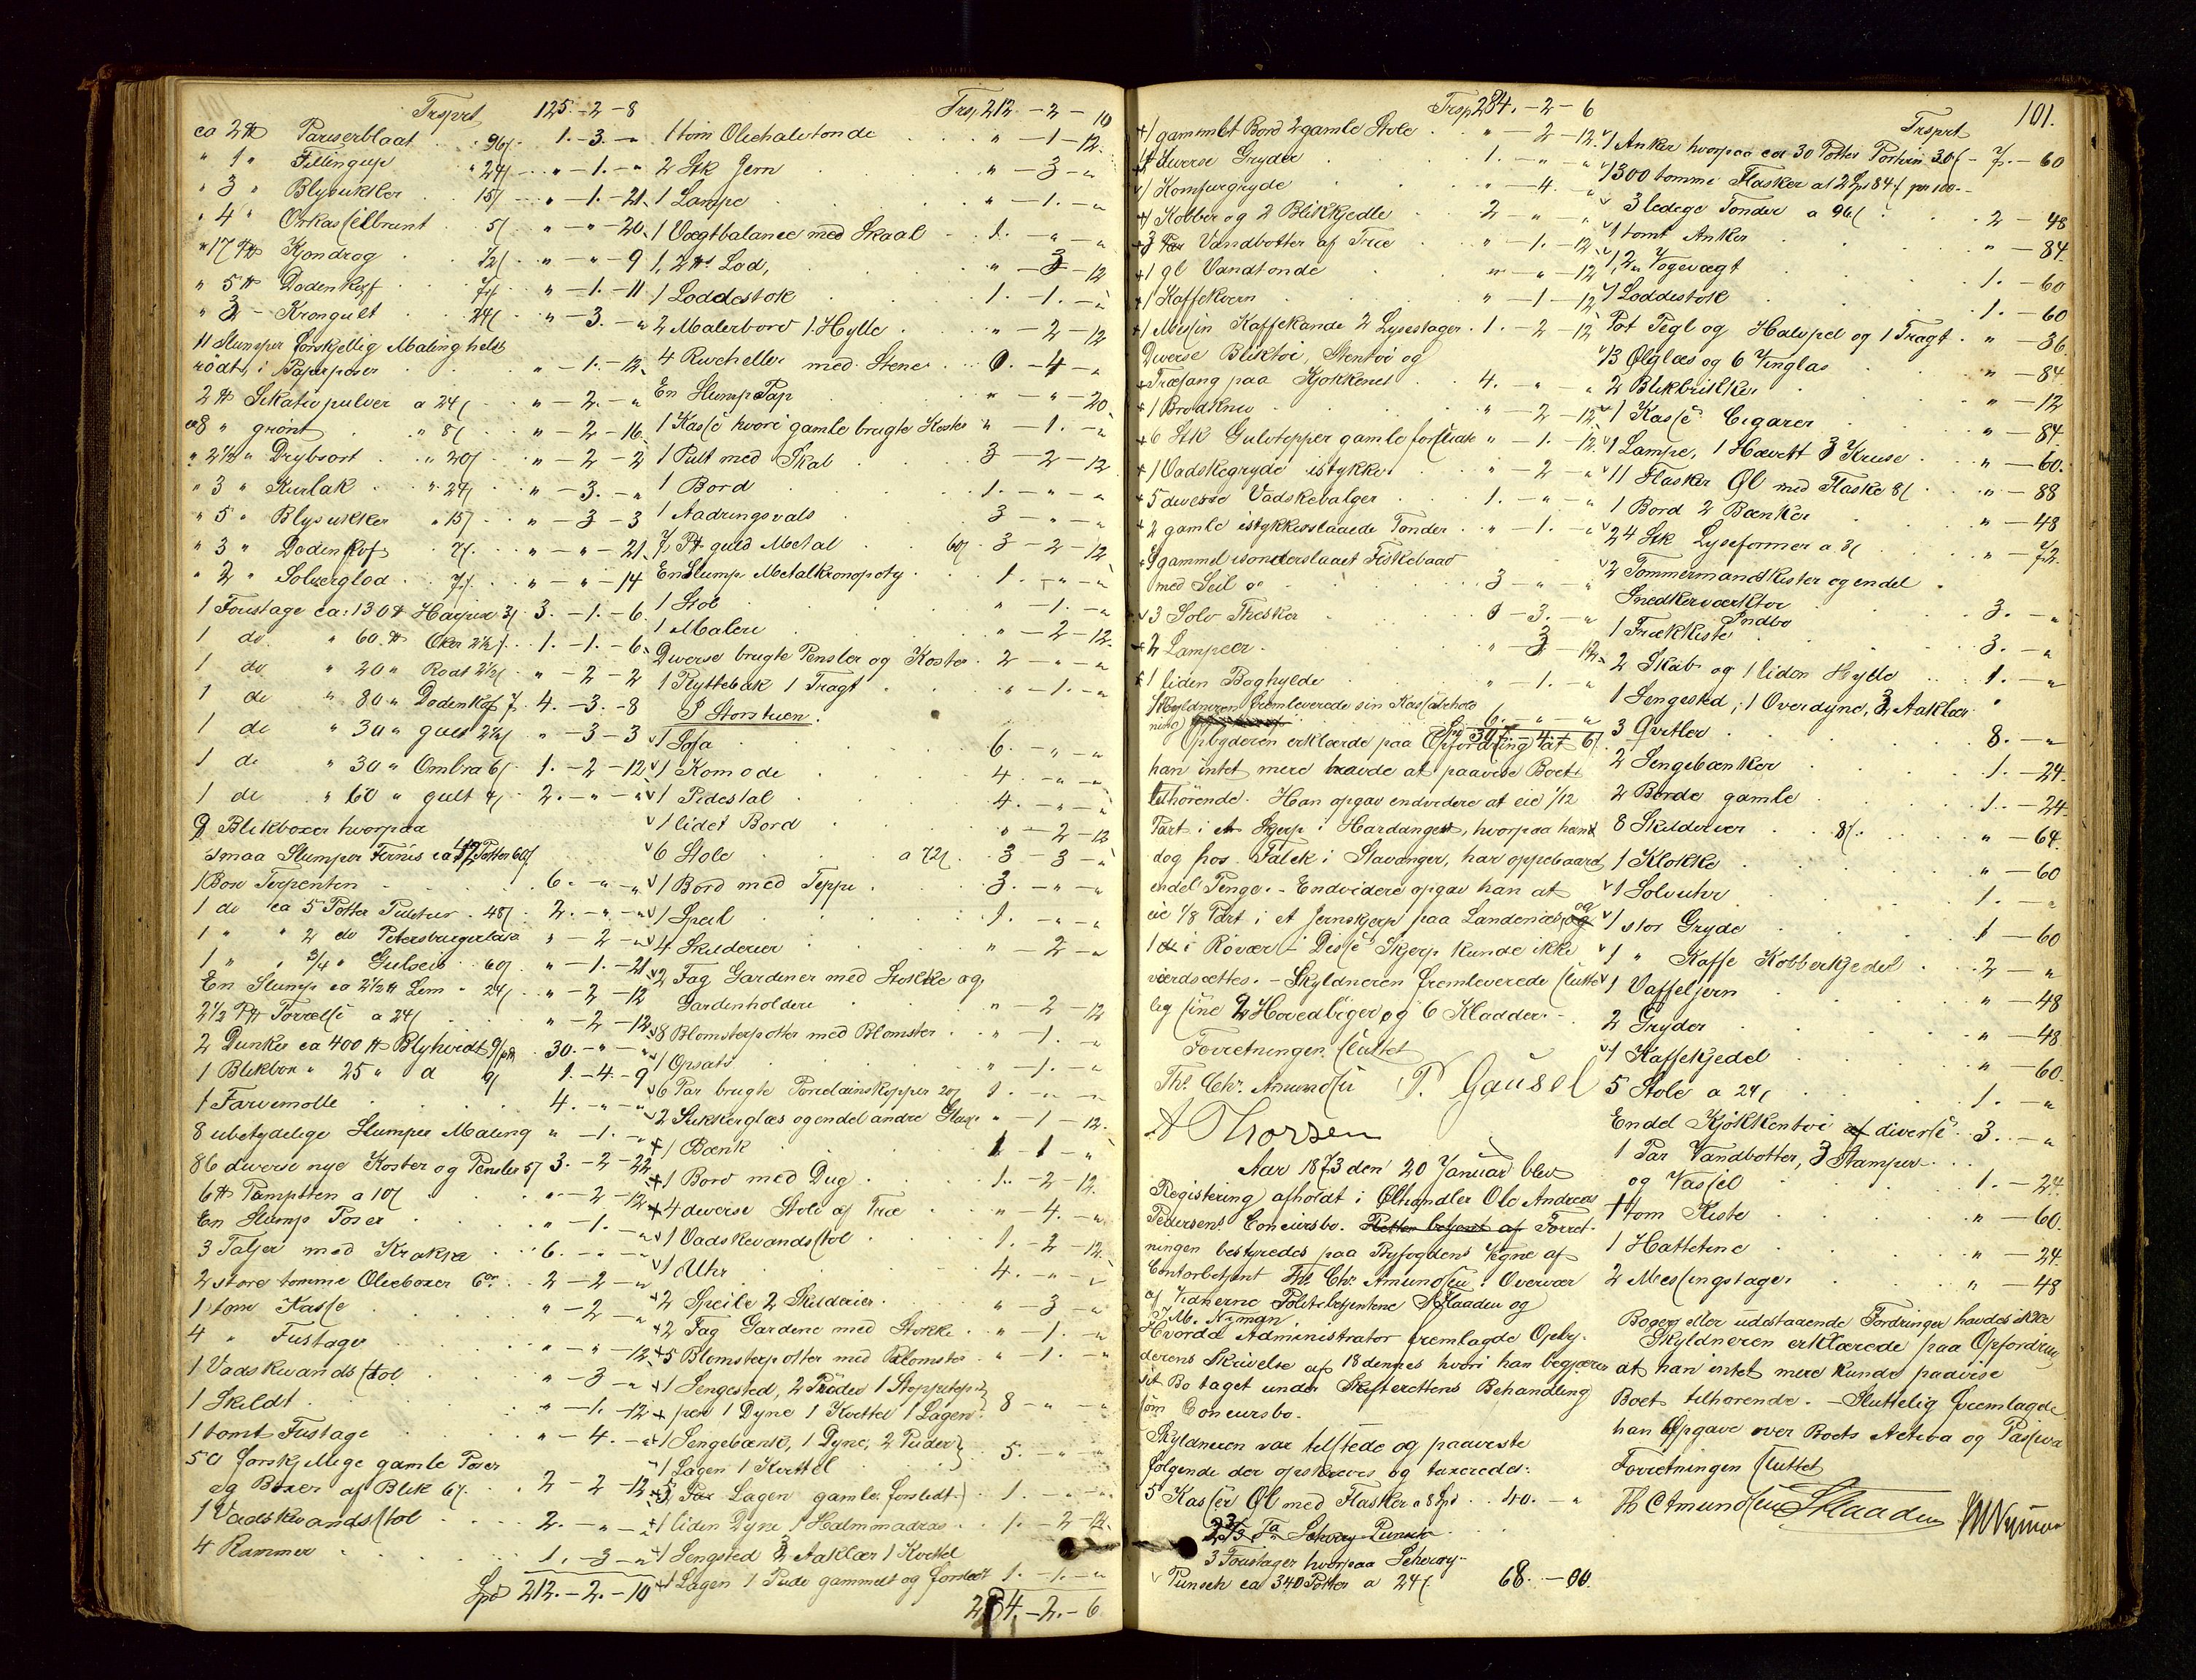 Trsprt 125.-2-8
ca 2 ℔ Pariserblaat 96/ 1.-3.-"
" 1 " 24/ " -1.-"
" 3 " Blysukker 15/ " -1.-21
" 4 " 5/ " - " -20
" 17 ℔ Kjønrøg 12/ " - " -9
" 5 ℔ Dodenkopf " -1.-11
" 2 - Kromgult 24/ " -3.-"
11 Slumper forskjellig Maling
rödt, i Papirposer " -1.-12
2 ℔ Sikativpulver a 24/ " -2.-"
ca 8 " grønt " 8/ " -2-16
" 2½ " " 20/ " -2-2
" 3 " " 24/ " -3.-"
" 5 " Blysukker " 15/ " -3-3
" 3 " Dodenkopf 7/ " - " -21
" 2 " Sølverglød 7/ " - " -14
1 Foustage ca: 130 ℔ 3/ 3.-1.-6
1 do " 60 ℔ Oker 2½/ 1.-1.-6
1 do " 20 " Rødt 2½/ " -2-2
1 do " 80 " Dodenkopf 7. 4.-3.-8
1 do " 30 " gult 2½/ " -3-3
1 do " 30 " Ombra 6/ 1.-2-12
1 do " 60 " gult 2.-"-"
9 Blikboxer hvorpaa
smaa Slumper Fernis ca 12 Potter 60/
1 Box Terpentin 6.-"-"
1 do ca 5 Potter 48/ 2.-"-"
1 " " 2 do " -2-"
1 " " 3/4 " 60/ " -1.-21
En Slump ca 2½ ℔ Lim " 24/ " -2-12
2½ ℔ a 24/ " -2-12
2 Dunker ca 400 ℔ Blyhvidt 30.-"-"
1 Blikbox " 25 " a 9/ 1.-4.-9
1 Farvemølle 4.-"-"
8 ubetydelige Slumper Maling " -1.-"
86 diverse nye Koster og Pensler 5/ 3.-2-22
6 ℔ Pampsten a 10/ " -2-12
En Slump Poser " -1.-"
3 Taljer med 6.-"-"
2 store tomme Olieboxer 2-2-"
1 tom Kasse " -2-"
4 " Fustager " - " -12
1 Vadskevandsstol " -3-"
1 Skildt " -1.-12
1 tomt Fustage " -4.-"
50 forskjellige gamle Poser
og Boxer af Blik 6/ 2-2-12
1 Vadskevandsstol 2.-"-"
4 Rammer 1.-3-"
Spd 212.-2.-10
Trsp 212.-2-10
1 tom Oliehalvtønde " -1-12
2 Stk Jern " -3-"
1 Lampe " -1.-"
1 Vægtbalance med Skaal 1.-"-"
1, 2 ℔s Lod, " -3-12
1 Loddestok 1.-1.-"
2 Malerbord 1 Hylle " -2-12
4 Rivehelle med Stene 0.-4-"
En Slump Pap " - " -20
1 Kasse hvori gamle brugte Koster " -1.-"
1 Pult med Skab 3-2-12
1 Bord 1.-"-"
1 Aadringsvals 3-"-"
7 Pk guld Metal 60/ 3-2-12
En Slump 1.-"-"
1 Stol " -1.-"
1 Maleri " -2-12
Diverse brugte Pensler og Koster 2-"-"
1 1 Tragt " -1.-"
I Storstuen.
1 Sofa 6.-"-"
1 Komode 4.-"-"
1 Pidestal 4.-"-"
1 lidet Bord " -2-12
6 Stole a 72/ 3-3-"
1 Bord med Teppe 3.-"-"
1 Speil 1.-"-"
4 Skilderier " 2-"
2 Fag Gardiner med Stokke og
Gardinholdere " -2-12
8 Blomsterpotter med Blomster " -1.-"
1 Opsats " -1.-"
6 Par brugte Porcelainskopper 20/ 1.-"-"
2 Sukkerglas og endel andre Glas " -1-12
1 Bænk 1-1-"
1 Bord med Dug 1.-2-12
4 diverse Stole af Træ " -4.-"
1 Vadskevandsstol 1.-2-12
1 Uhr 4.-"-"
2 Speile 2 Skilderier " -3-"
2 Fag Gardine med Stokke " -1.-"
5 Blomsterpotter med Blomster " -1.-"
1 Sengested, 2 Puder 1 Stoppetep-
per 1 Dyne 1 Kvittel 1 Lagen 8-"-"
1 Sengebænk, 1 Dyne, 2 Puder
1 Lagen 1 Kvittel 5.-"-"
5 Par Lagen gamle forslidt 1.-"-"
1 liden Dyne 1 Halmmadras 1.-2-12
1 Sengsted 2 Aaklær 1 Kvittel
1 Lagen 1 Pude gammelt og forslidt 1.-1.-"
284.-2.-6
Trsp 284.-2-6
1 gammelt Bord 2 gamle Stole " -2-12
4 diverse Gryder 1.-"-"
1 Komfurgryde " -4.-"
1 Kobber og 2 Blikkjedle 2-"-"
3 Par Vandbøtter af Træ " -1.-12
1 gl Vandtønde " - " -12
1 Kaffekvern " -1-12
1 Messin Kaffekande 2 Lysestager 1.-2-12
Diverse Bliktøi, Stentøi og
Træfang paa Kjøkkenet 4.-"-"
1 Brødkniv " -2-12
6 Stk Gulvtepper gamle forslidte " -1.-12
1 Vadskegryde istykker " -2-"
5 diverse Vadskebalger 1.-"-"
2 gamle istykkerslaaede Tønder " -1.-"
1 gammel isønderslaaet Fiskebaad
med Seil 3-"-"
3 Sølv Theskee 0-3.-"
2 Lamper " -3-12
1 liden Boghylde " -1.-"
Skyldneren fremleverede sin Kassabehold
ning 6.-"-"
Spd 307.-4.-6
Opbyderen erklærde paa Opfordring at
han intet mere havde at paavise Boet
tilhörende. Han opgav endvidere at eie 1/12
Part i et Skjerp i Hardanger, hvorpaa han
dog hos Falck i Stavanger, har oppebaaret
endel Penge. - Endvidere opgav han at
eie 1/8 Part i et Jernskjerp paa Landenes og
1 do i Røvær - Disse Skjerp kunde ikke
værdsættes. - Skyldneren fremleverede slutte
lig sine 2 Hovedbøger og 6 Kladder. -
Forretningen sluttet
Th. Chr. Amundsen P. Gausel
A Thorsen
Aar 1873 den 20 Januar blev
Registering afholdt i Ølhandler Ole Andreas
Pedersens Concursbo. Retten betjent af Forret-
ningen bestyredes paa Byfogdens Vegne af
Contorbetjent Th. Chr. Amundsen. Overvær
af Vidnerne Politibetjentene S Klaaden og
J. M. Nyman
Hvorda Administrator fremlagde Opby-
derens Skrivelse af 18 dennes hvori han begjærer
sit Bo taget under Skifterettens Behandling
som Concursbo.
Skyldneren var tilstede og paaviste
følgende der opskreves og taxeredes:
5 Kasser Øl med Flasker a 8 Spd 40.-"
3 Foustager hvorpaa Scherry-
Punsch ca 340 Potter a 24/ 68.-00.
101.
Trsprt
1 Anker hvorpaa ca 30 Potter Portvin 30/ - 7.-60
1300 tomme Flasker at 2 Spd 84/ per 100.-
3 ledige Tønder a 96/ 2-48
1 tomt Anker " -84
1, 2 Vogevægt 1.-60
1 Loddestok 1.-60
Pot Pegl og Halvpel og 1 Tragt " -36
13 Ølglas og 6 Vinglas " -84
2 Blikbrikker " -12
1 Kasse Cigarer " -84
1 Lampe, 1 Hævert 3 Kruse " -60
11 Flasker Øl med Flaske 8/ " -88
1 Bord 2 Bænker " -48
24 Stk Lyseformer a 3/ " -72
2 Tømmermandskister og endel
Snedkerværktøi 3.-"
Indbo
1 Trækkiste 3.-"
2 Skab og 1 liden Hylle 1.-"
1 Sengested, 1 Overdyne, 3 Aaklær
3 Qvitler 8.-"
2 Sengebænker 1.-24
2 Borde gamle 1.-24
8 Skilderier 8/ " -64
1 Klokke " -60
1 Sølvuhr 1.-"
1 stor Gryde 1-60
1 " Kaffe Kobberkjedel 2-"
1 Vaffeljern " -48
2 Gryder " -48
1 Kaffekjedel " -60
5 Stole a 24/ 1.-"
Endel Kjökkentøi af diverse 3.-"
1 Par Vandbøtter, 3 Stamper
og Vassel 1.-24
1 tom Kiste " -60
1 Hattetine " -24
2 Messingstager " -48
Bøger eller udestaaende Fordringer havdes ikke
Skyldneren erklærede paa Opfordring
at han intet mere kunde paavise
Boet tilhørende. - Sluttelig fremlagde
han Opgave over Boets Activa og Passiva
Forretningen sluttet
Th C Amundsen S Klaaden JM Nyman